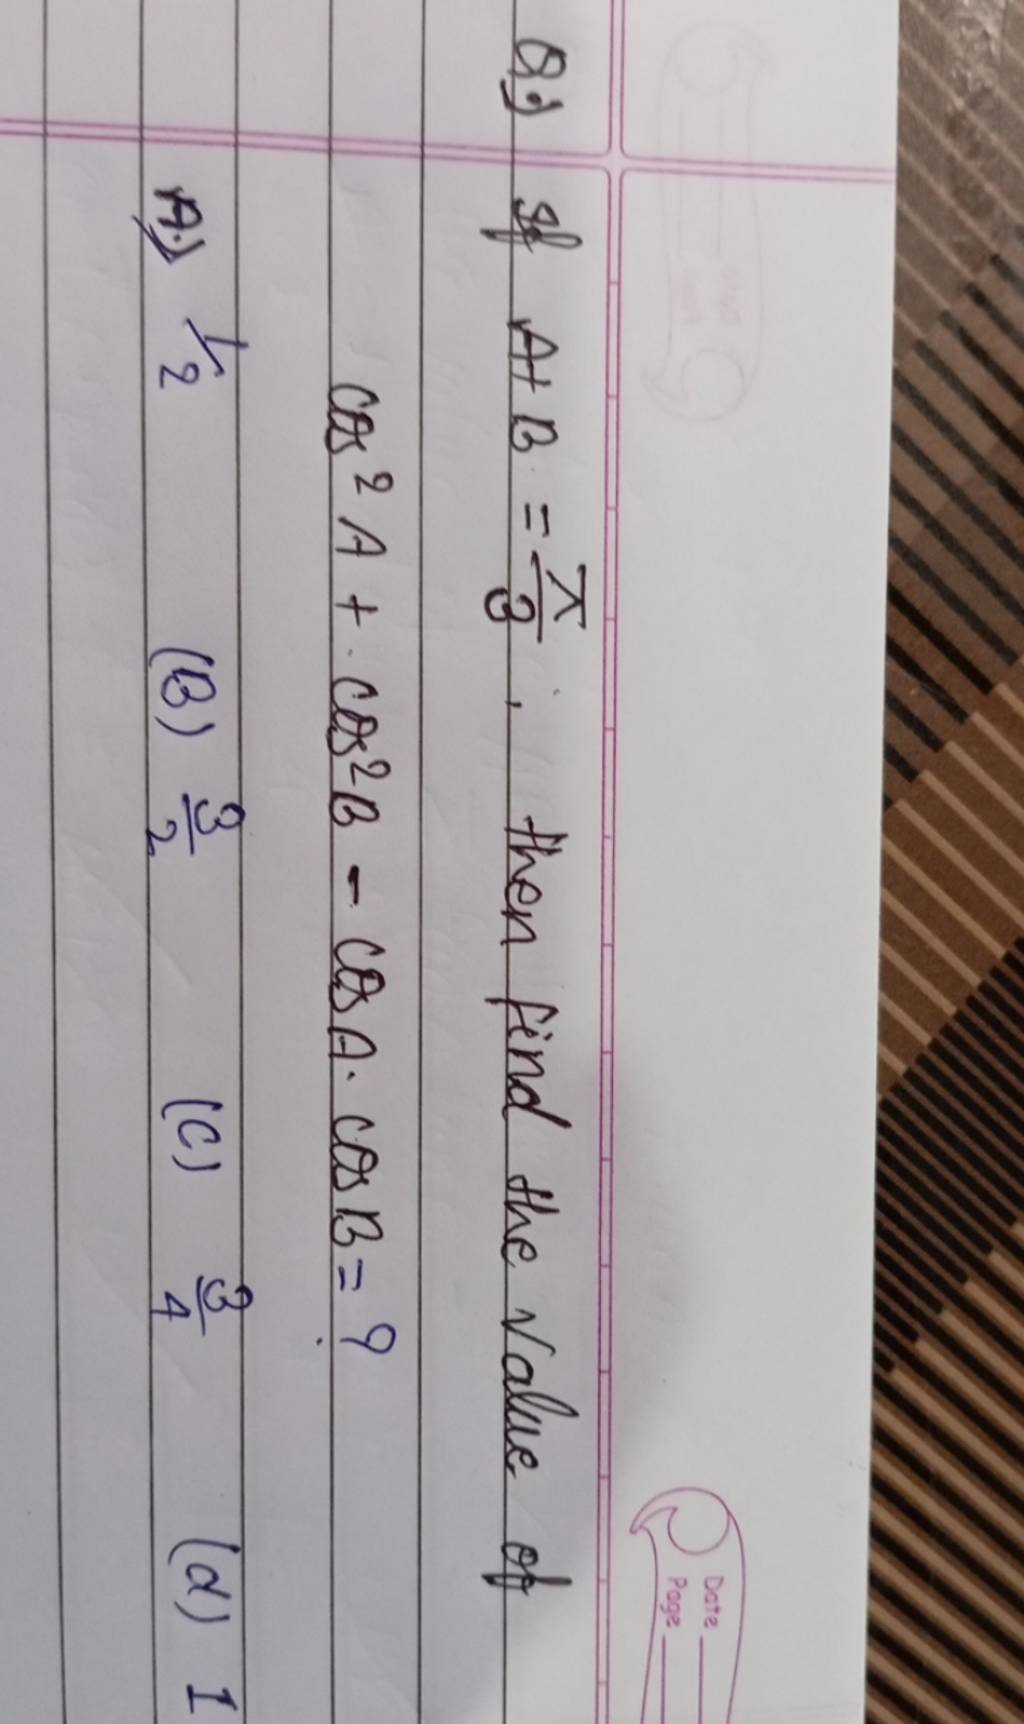 Q.) If A+B = π/3, then find the value of
cos²A + cos²B - cosA. cosB = ?
A.) 1/2 (B) 3/2 (C) 3/4 (d) 1
Date
Page